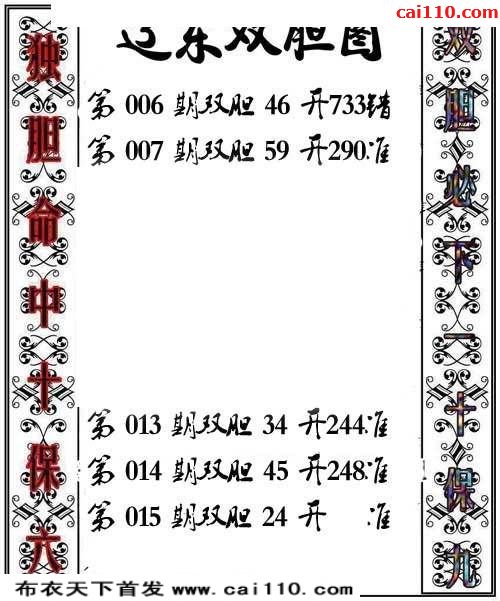 cai110.com
辽东双胆图
第 006 期双胆 46 开733错
第 007 期双胆 59 开290准
第 013 期双胆 34 开244准
第 014 期双胆 45 开248准
第 015 期双胆 24 开 准
独胆命中十保六
双胆必下一十保九
布衣天下首发 www.cai110.com